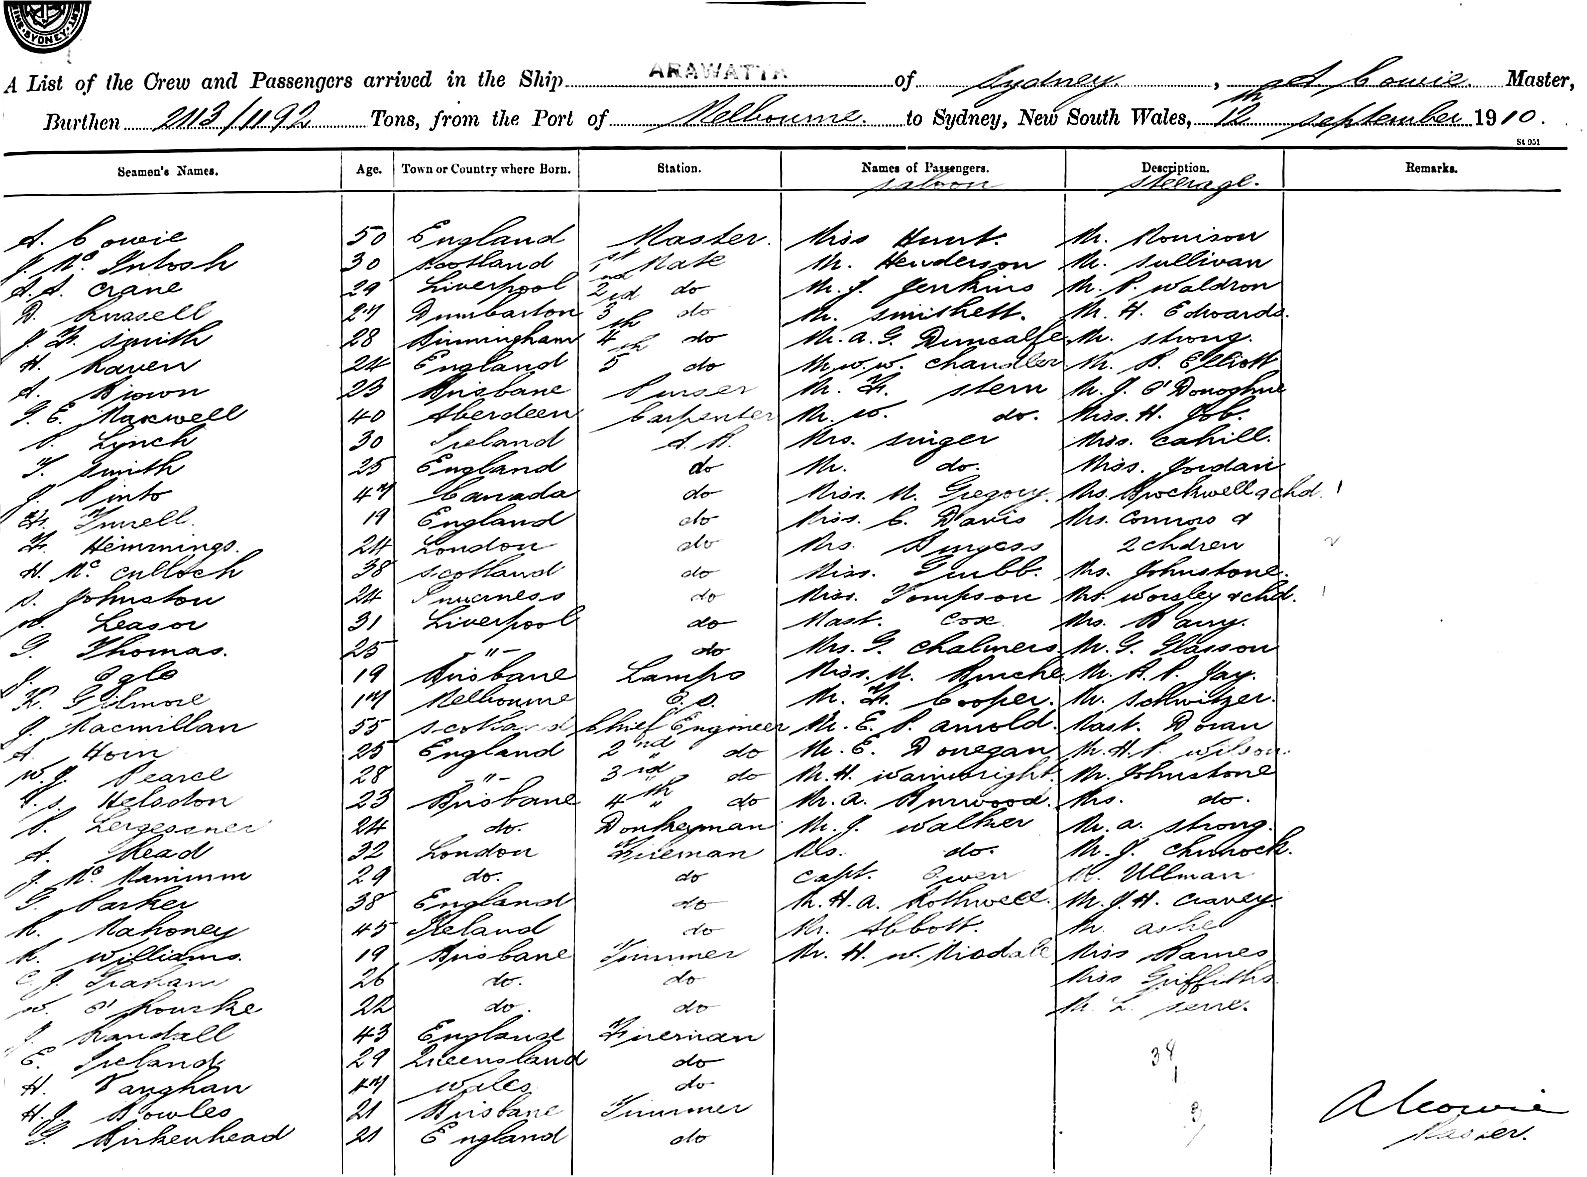 SYDNEY
A List of the Crew and Passengers arrived in the Ship ARAWATTA of Sydney, A Cowie. Master,
Burthen 2113/1192 Tons, from the Port of Melbourne. to Sydney, New South Wales, 12th september 1910.
St 951
Seamen's Names. Age. Town or Country where Born. Station. Names of Passengers. Description. Remarks.
saloon steerage.
A. Cowie 50 England Master. Miss Hunt. Mr. Ronison
J. Mc Intosh 30 Scotland 1st Mate Mr. Henderson Mr. Sullivan
A.A. Crane 29 Liverpool 2nd do Mr. J. Jenkins Mr. P. Waldron
D. Russell 27 Dumbarton 3rd do Mr. Smithett. Mr. H. Edwards.
J. F. Smith 28 Birmingham 4th do Mr. A. G. Duncalfe Mr. Strong.
H. Raven 24 England 5th do Mr. W. W. Chandler Mr. R. Elliott
A. Brown 23 Brisbane Purser Mr. F. Stern Mr. J. O'Donoghue
G. E. Maxwell 40 Aberdeen Carpenter Mr. W. do. Miss. H. Job.
P. Lynch 30 Ireland A.B. Mrs. Singer Miss. Cahill.
T. Smith 25 England do Mr. do. Miss. Jordan
J. Pinto 47 Canada do Miss. M. Gregory. Mrs. Brockwell & chd. 1
F. Turrell. 19 England do Miss. C. Davis Mrs. Connors &
F. Hemmings. 24 London do Mrs. Burgess 2 chdren 2
H. Mc Culloch 38 Scotland do Miss. Grubb. Mrs. Johnstone.
S. Johnston 24 Inverness do Miss. Tompson Mrs. Worsley & chd. 1
W. Leasor 31 Liverpool do Mast. Cox. Mrs. Barry.
G. Thomas. 25 -"- do Mrs. G. Chalmers Mr. G. Glasson
Eglo 19 Brisbane Lamps Miss. M. Mr. A. P. Jay.
F. Gilmore 17 Melbourne Mr. F. Cooper. Mr. Schwitzer.
J. Macmillan 55 Scotland Chief Engineer Mr. E. P. Arnold. Mast. Doran
A. Horn 25 England 2nd " do Mr. E. Donegan Mr. H. P. Wilson.
W. J. Pearce 28 -"- 3rd " do Mr. H. Wainwright. Mr. Johnstone
Helsdon 23 Brisbane 4th " do Mr. A. Burwood. Mrs. do.
P. Lergessner 24 do. Donkeyman Mr. J. Walker Mr. A. Strong.
A. Read 32 London Fireman Mrs. do. Mr. J. Churrock.
J. Mc Manimm 29 do. do Capt. Owen Mr. Ullman
G. Parker 38 England do Mr. H. A. Rothwell. Mr. J. H. Craney.
R. Mahoney 45 Ireland do Mr. Abbott. Mr. Ashe
R. Williams. 19 Brisbane Trimmer Mr. H. W. Nisdale Miss Rames
C. J. Graham 26 do. do Miss Griffiths
W. O'Rourke 22 do. do Mr. L. Serre.
J. Randall 43 England Fireman
E. Ireland 29 Queensland do 38
H. Vaughan 47 Wales do 1
H. J. Bowles 21 Brisbane Trimmer A Cowie
G. Birkenhead 21 England do Master.